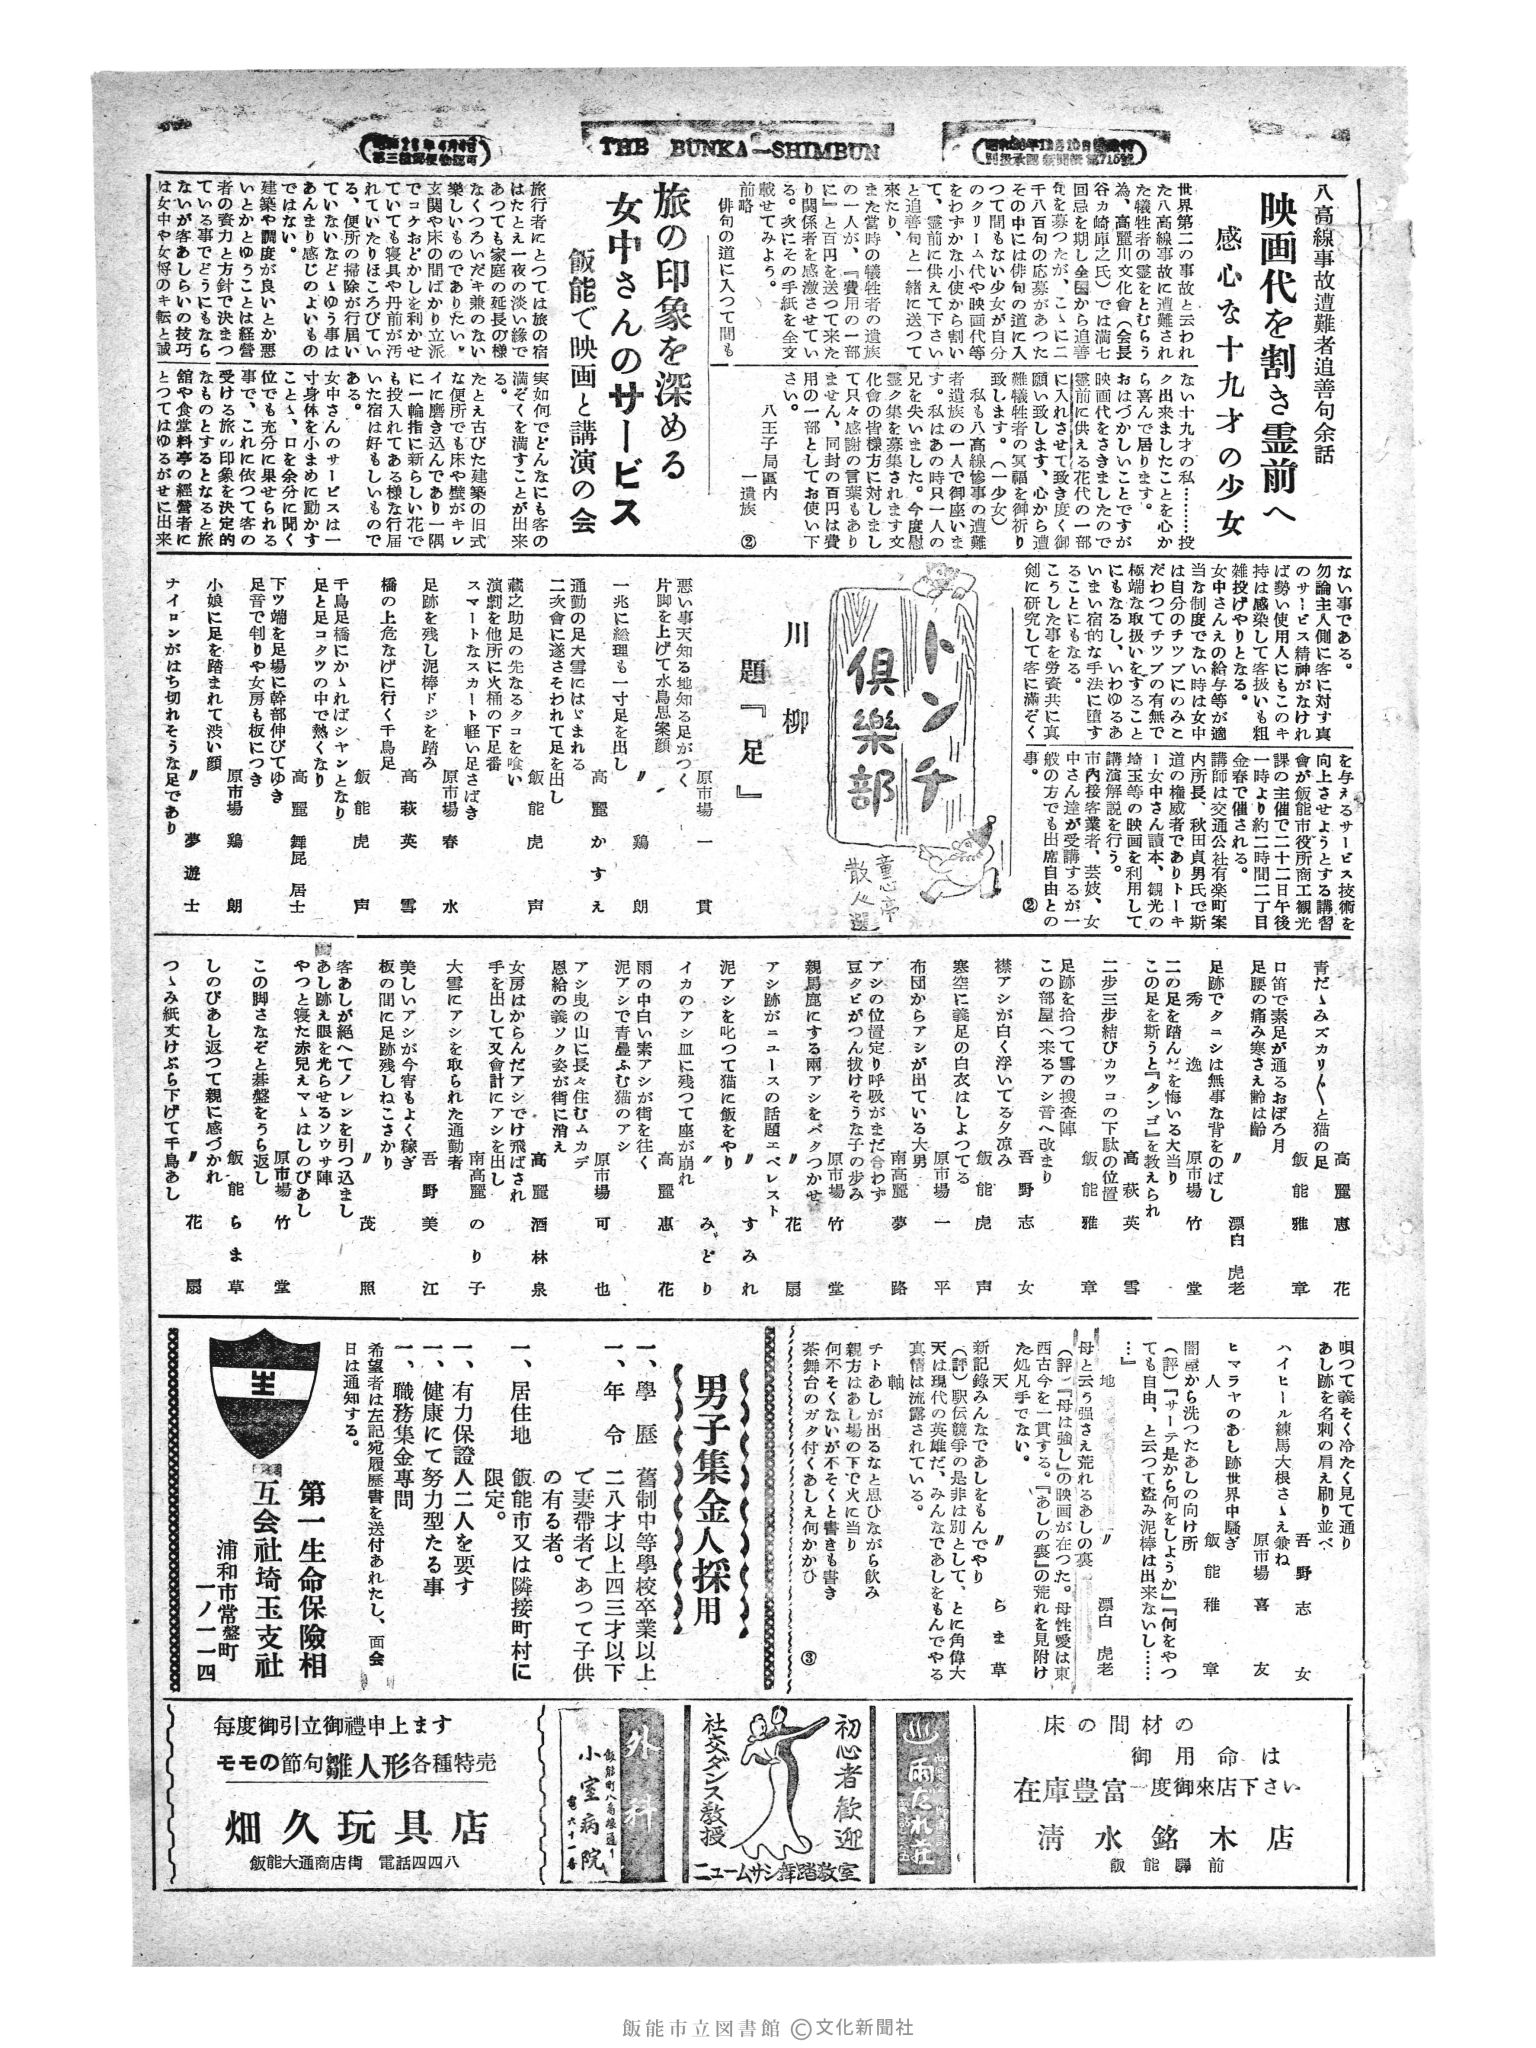 THE BUNKA-SHIMBUN
八高線事故遭難者追善句余話
映画代を割き霊前へ
感心な十九才の少女
世界第二の事故と云われ
た八高線事故に遭難され
た犠牲者の霊をとむらう
為、高麗川文化會（会長
谷カ崎庫之氏）では満七
回忌を期し全国から追善
句を募つたが、こゝに二
千八百句の応募があつた
その中には俳句の道に入
つて間もない少女が自分
のクリーム代や映画代等
をわずかな小使から割い
て、霊前に供えて下さい
と追善句と一緒に送つて
来たり、
また当時の犠牲者の遺族
の一人が、『費用の一部
に』と百円を送つて来た
り関係者を感激させてい
る。次にその手紙を全文
載せてみよう。
前略
俳句の道に入つて間も
ない十九才の私…………投
ク出来ましたことを心か
ら喜んで居ります。
おはづかしいことですが
映画代をさきましたので
霊前に供える花代の一部
に入れさせて致き度く御
願い致します、心から遭
難犠牲者の冥福を御祈り
致します。（一少女）
私も八高線惨事の遭難
者遺族の一人で御座いま
す。私はあの時只一人の
兄を失いました。今度慰
霊ク集を募集されます文
化會の皆様方に対しまし
て只々感謝の言葉もあり
ません、同封の百円は費
用の一部としてお使い下
さい。
八王子局區内
一遺族
②
旅の印象を深める
女中さんのサービス
飯能で映画と講演の会
旅行者にとつては旅の宿
はたとえ一夜の淡い縁で
あつても家庭の延長の様
なくつろいだキ兼のない
樂しいものでありたい。
玄関や床の間ばかり立派
でコケおどかしを利かせ
ていても寝具や丹前が汚
れていたりほころびてい
る、便所の掃除が行届い
ていないなどゝゆう事は
あんまり感じのよいもの
ではない。
建築や調度が良いとか悪
いとかとゆうことは経営
者の資力と方針で決まつ
ている事でどうにもなら
ないが客あしらいの技巧
は女中や女將のキ転と誠
実如何でどんなにも客の
満ぞくを満すことが出来
る。
たとえ古びた建築の旧式
な便所でも床や壁がキレ
イに磨き込んであり一隅
に一輪指に新らしい花で
も投入れてある様な行届
いた宿は好もしいもので
ある。
女中さんのサービスは一
寸身体を小まめに動かす
ことゝ、口を余分に聞く
位でも充分に果せられる
事で、これに依つて客の
受ける旅の印象を決定的
なものとするとなると旅
舘や食堂料亭の經營者に
とつてはゆるがせに出来
ない事である。
勿論主人側に客に対す真
のサービス精神がなけれ
ば勢い使用人にもこのキ
持は感染して客扱いも粗
雑投げやりとなる。
女中さんえの給与等が適
当な制度でない時は女中
は自分のチツプにのみこ
だわつてチツプの有無で
極端な取扱いをすること
にもなるし、いわゆるあ
いまい宿的な手法に堕す
ることにもなる。
こうした事を労資共に真
剣に研究して客に満ぞく
を与えるサービス技術を
向上させようとする講習
會が飯能市役所商工観光
課の主催で二十二日午後
一時より約二時間二丁目
金春で催される。
講師は交通公社有楽町案
内所長、秋田貞男氏で斯
道の権威者でありトーキ
ー女中さん讀本、観光の
埼玉等の映画を利用して
講演解説を行う。
市内接客業者、芸妓、女
中さん達が受講するが一
般の方でも出席自由との
事。
②
トンチ
倶樂部
童心亭
散人選
川柳
題『足』
原市場 一貫
悪い事天知る地知る足がつく
片脚を上げて水鳥思案顔
〃 鶏朗
一兆に総理も一寸足を出し
高麗 かすえ
通勤の足大雪にはゞまれる
二次會に遂さそわれて足を出し
飯能 虎声
蔵之助足の先なるタコを喰い
演劇を他所に火桶の下足番
スマートなスカート軽い足さばき
原市場 春水
足跡を残し泥棒ドジを踏み
高萩 英雪
橋の上危なげに行く千鳥足
飯能 虎声
千鳥足橋にかゝればシヤンとなり
足と足コタツの中で熱くなり
高麗 舞屁居士
下ツ端を足場に幹部伸びてゆき
足音で判りや女房も板につき
原市場 鶏朗
小娘に足を踏まれて渋い顔
〃 夢遊士
ナイロンがはち切れそうな足であり
高麗 恵花
青だゝみズカリ〳〵と猫の足
飯能 雅章
口笛で素足が通るおぼろ月
足腰の痛み寒さえ齢は齢
〃 漂白虎老
足跡でタニシは無事な背をのばし
秀逸 原市場 竹堂
二の足を踏んだを悔いる大当り
この足を斯うと『タンゴ』を教えられ
高萩 英雪
二歩三歩結びカツコの下駄の位置
飯能 雅章
足跡を拾つて雪の捜査陣
この部屋へ来るアシ音へ改まり
吾野 志女
襟アシが白く浮いてる夕凉み
飯能 虎声
寒空に義足の白衣はしよつてる
原市場 一平
布団からアシが出ている大男
南高麗 夢路
アシの位置定り呼吸がまだ合わず
豆タビがつん抜けそうな子の歩み
原市場 竹堂
親馬鹿にする両アシをバタつかせ
〃 花扇
アシ跡がニユースの話題エベレスト
すみれ
泥アシを叱つて猫に飯をやり
〃 みどり
イカのアシ皿に残つて座が崩れ
高麗 恵花
雨の中白い素アシが街を往く
泥アシで青疊ふむ猫のアシ
原市場 可也
アシ曳の山に長々住むムカデ
恩給の義ソク姿が街に消え
高麗 酒林泉
女房はからんだアシでけ飛ばされ
手を出して又會計にアシを出し
南高麗 のり子
大雪にアシを取られた通勤者
吾野 美江
美しいアシが今宵もよく稼ぎ
板の間に足跡残しねこさかり
〃 茂照
客あしが絶へてノレンを引つ込まし
あし跡え眼を光らせるソウサ陣
やつと寝た赤児えマゝはしのびあし
原市場 竹堂
この脚さなぞと碁盤をうら返し
飯能 らま草
しのびあし返つて親に感づかれ
〃 花扇
つゝみ紙丈けぶら下げて千鳥あし
唄つて義そく冷たく見て通り
あし跡を名刺の肩え刷り並べ
吾野 志女
ハイヒール練馬大根さゝえ兼ね
原市場 喜友
ヒマラヤのあし跡世界中騒ぎ
人 飯能 稚章
闇屋から洗つたあしの向け所
（評）『サーテ是から何をしようか』『何をやつ
ても自由、と云つて盗み泥棒は出来ないし……
…』
地 〃 漂白虎老
母と云う強さえ荒れるあしの裏
（評）『母は強し』の映画が在つた。母性愛は東
西古今を一貫する。『あしの裏』の荒れを見附け
た処凡手でない。
天 〃 らま草
新記錄みんなであしをもんでやり
（評）駅伝競爭の是非は別として、とに角偉大
天は現代の英雄だ、みんなであしをもんでやる
真情は流露されている。
軸
チトあしが出るなと思ひながら飲み
親方はあし場の下で火に当り
何不そくないが不そくと書きも書き
茶舞台のガタ付くあしえ何かかひ
③
男子集金人採用
一、學歴 舊制中等學校卒業以上
一、年令 二八才以上四三才以下
で妻帯者であつて子供
の有る者。
一、居住地 飯能市又は隣接町村に
限定。
一、有力保證人二人を要す
一、健康にて努力型たる事
一、職務集金專問
希望者は左記宛履歴書を送付あれたし、面会
日は通知する。
第一生命保險相
互会社埼玉支社
浦和市常盤町
一ノ一一四
床の間材の
御用命は
在庫豊富一度御來店下さい
清水銘木店
飯能驛前
雨だれ荘
初心者歓迎
社交ダンス教授
ニュームサシ舞踏教室
外科
飯能町八高線通り
小室病院
電六十一番
毎度御引立御禮申上ます
モモの節句雛人形各種特売
畑久玩具店
飯能大通商店街 電話四四八
飯能市立図書館 ©文化新聞社